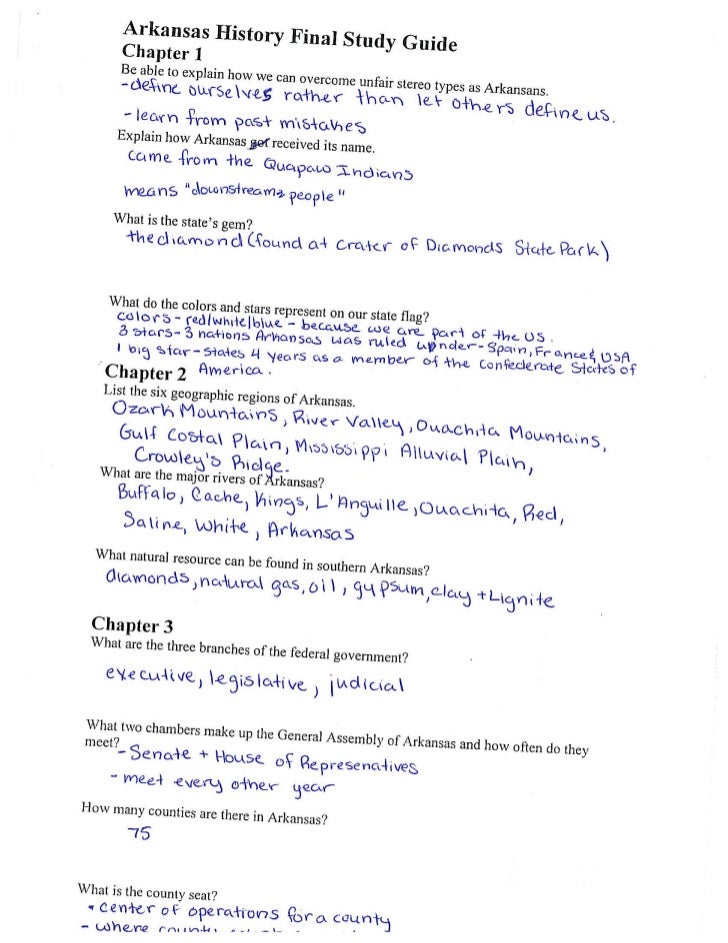 Arkansas History Final Study Guide
Chapter 1
Be able to explain how we can overcome unfair stereo types as Arkansans.
-define ourselves rather than let others define us.
-learn from past mistakes
Explain how Arkansas got received its name.
came from the Quapaw Indians
means "downstream people"
What is the state's gem?
the diamond (found at Crater of Diamonds State Park)
What do the colors and stars represent on our state flag?
colors - red/white/blue - because we are part of the US.
3 stars - 3 nations Arkansas was ruled under - Spain, France & USA
1 big star - states 4 years as a member of the Confederate States of
Chapter 2 America.
List the six geographic regions of Arkansas.
Ozark Mountains, River Valley, Ouachita Mountains,
Gulf Costal Plain, Mississippi Alluvial Plain,
Crowley's Ridge.
What are the major rivers of Arkansas?
Buffalo, Cache, Kings, L'Anguille, Ouachita, Red,
Saline, White, Arkansas
What natural resource can be found in southern Arkansas?
diamonds, natural gas, oil, gypsum, clay + Lignite
Chapter 3
What are the three branches of the federal government?
executive, legislative, judicial
What two chambers make up the General Assembly of Arkansas and how often do they
meet?
-Senate + House of Represenatives
- meet every other year
How many counties are there in Arkansas?
75
What is the county seat?
• center of operations for a county
- where